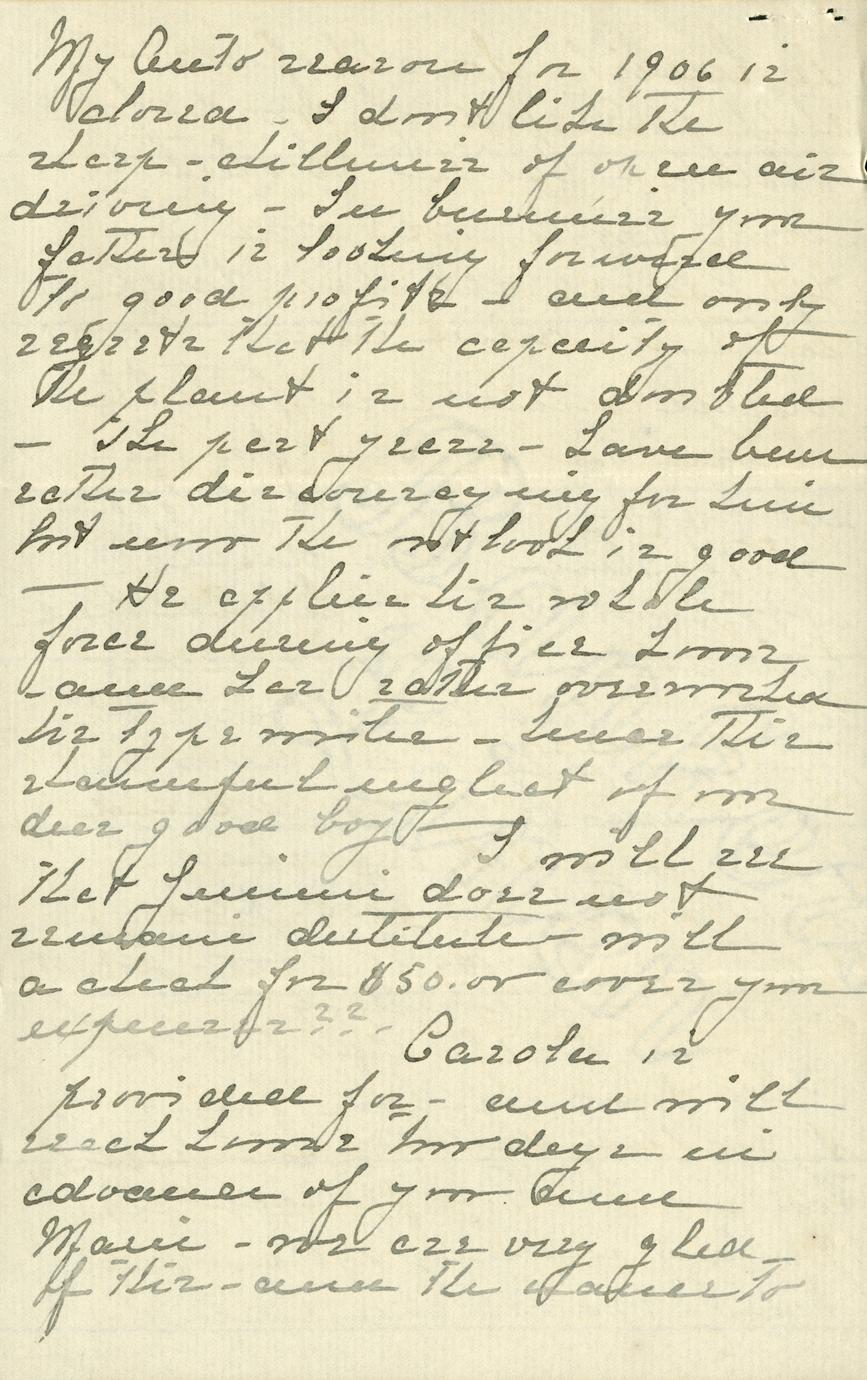 My Auto season for 1906 is
closed - I don't like the
sharp - chilliness of open air
driving - In business your
father is looking forward
to good profits - and only
regrets that the capacity of
the plant is not doubled
- The past years - have been
rather discouraging for him
but now the outlook is good
- He applies his whole
force during office hours
- and has rather overworked
his typewriter - hence this
shameful neglect of our
dear good boy - I will see
that Jimmi does not
remain destitute - will
a check for $50.00 cover your
expenses??.
Carola is
provided for - and will
reach home two days in
advance of you and
Marie - we are very glad
of this - and the